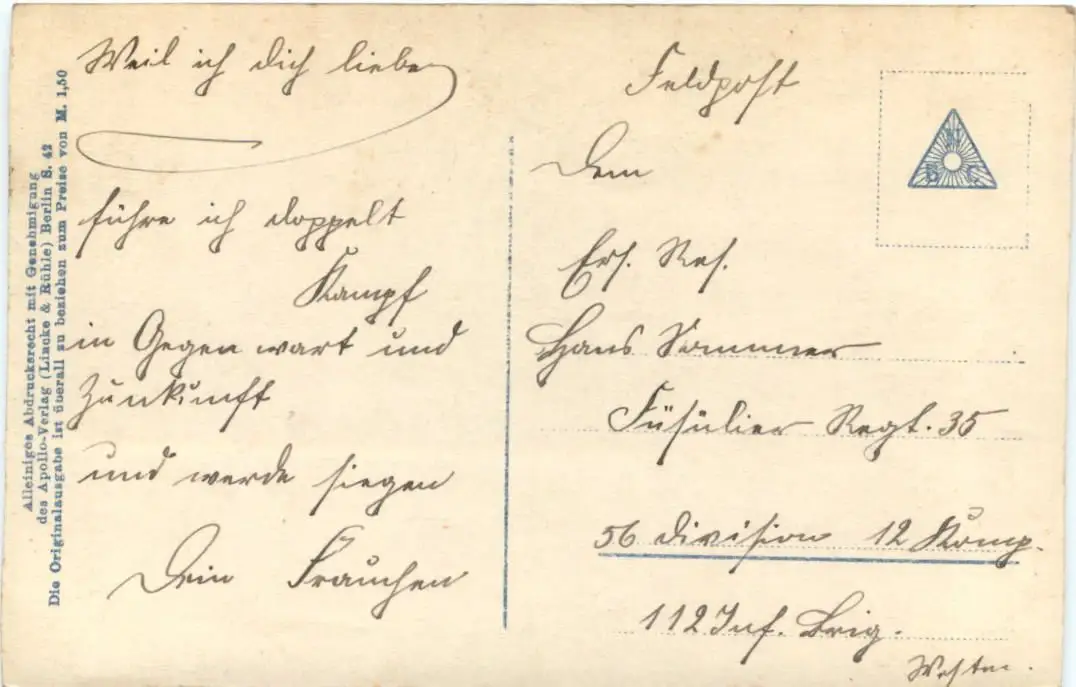 Alleiniges Abdrucksrecht mit Genehmigung
des Apollo-Verlag (Lincke & Rühle) Berlin S. 42
Die Originalausgabe ist überall zu beziehen zum Preise von M. 1,50
Weil ich dich liebe
führe ich doppelt
Kampf
in Gegenwart und
Zunkunft
und werde siegen
Dein Frauchen
Feldpost
N
B C
Dem
Ers. Res.
Hans Sommer
Füsülier Regt. 35
56 division 12 Komp.
112 Inf. Brig.
Westen.